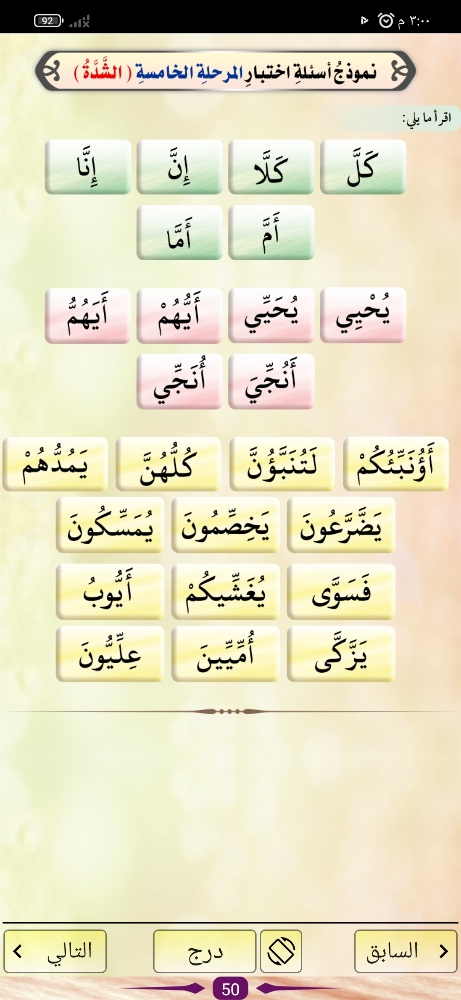 ٣:٠٠ م 92
نموذجُ أسئلةِ اختبارِ المرحلةِ الخامسةِ ( الشَّدَّةُ )
اقرأ ما يلي:
كَلَّ كَلَّا إِنَّ إِنَّا
أَمَّ أَمَّا
يُحْيِي يُحَيِّي أَيُّهُمْ أَيَهُمُّ
أَنُجِّيَ أُنَجِّي
أَؤُنَبِّئُكُمْ لَتُنَبَّؤُنَّ كُلُّهُنَّ يَمُدُّهُمْ
يَضَّرَّعُونَ يَخِصِّمُونَ يُمَسِّكُونَ
فَسَوَّى يُغَشِّيكُمْ أَيُّوبُ
يَزَّكَّى أُمِّيِّينَ عِلِّيُّونَ
السابق درج التالي
50